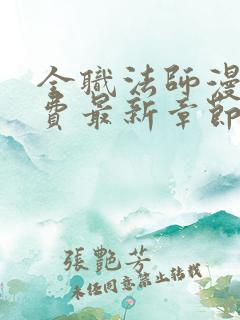 全職法師漫
費最新章節
張艷芳
未經同意禁止轉載